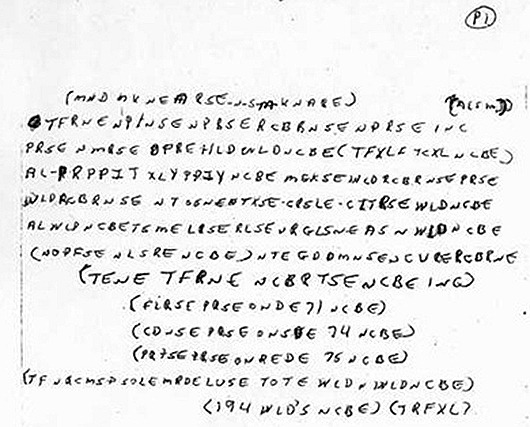 P1
(MND MKNEARSE-N-S-M-KNARE) (ALSM)
TFRNE NPINSENPBSERCBBRNSENPRSE INC
PRSE NMRSE OPREHLD WLDNCBE (TFXLF TCXL NCBE)
AL-PRPPIT XLY PPIY NCBE MGKSE WLDRCBRNSE PRSE
WLDRCBRNSE NTOSNENTXSE-CRSLE-CITRSE WLDNCBE
ALWLDNCBETSMELRSERLSEURGLSNEASNWLDNCBE
(NOPFSE NLSRE NCBE) NTEGDDMNSENCURERCBRNE
(TENE TFRNE NCBRTSENCBE ING)
(FLRSE PRSE ONDE 71 NCBE)
(CDNSE PRSE ONSDE 74 NCBE)
(PRTSE PRSE ONREDE 75 NCBE)
(TFNQCMSP SOLE MRDE LUSE TOTE WLDN WLDNCBE)
(194 WLD'S NCBE) (TRFXL)